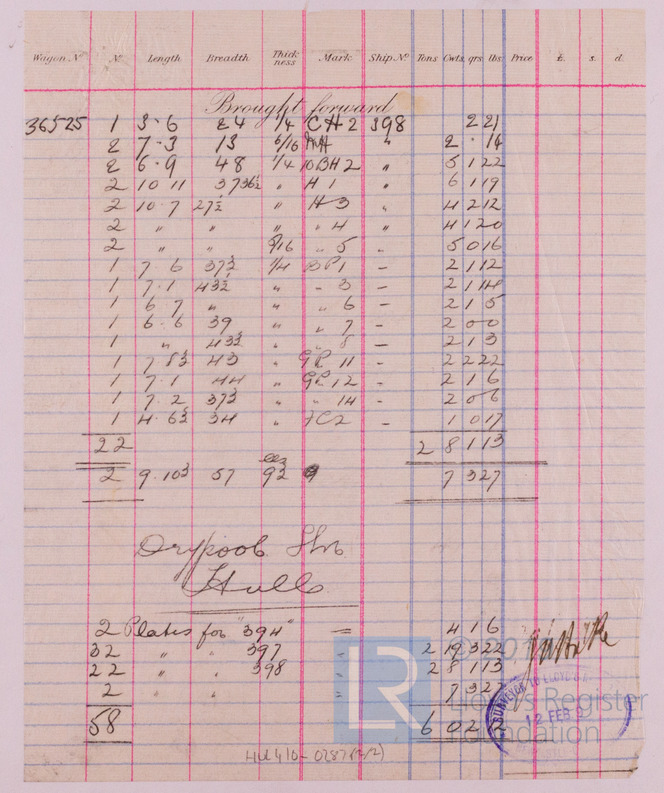 Wagon No No Length Breadth Thickness Mark Ship No Tons Cwts. qrs. lbs. Price £. s. d.
Brought forward
36525 1 3·6 24 1/4 CH2 398 2 21
2 7·3 13 2 · 14
2 6·9 48 1/4 BH2 " 5 1 22
2 10 11 " H 1 " 6 1 19
2 10·7 27½ " H 3 " 4 2 12
2 " " " " 4 " 4 1 20
2 " " " 5 5 0 16
1 7 6 37½ 1/4 BP1 – 2 1 12
1 7·1 43½ " " 3 – 2 1 14
1 6 7 " " " 6 – 2 1 5
1 6·6 39 " " 7 – 2 0 0
1 " 43½ " " 8 – 2 1 3
1 7 8½ 43 " 11 – 2 2 22
1 7·1 44 " 12 – 2 1 6
1 7·2 37½ " " 14 – 2 0 6
1 4·6½ 34 " – 1 0 17
22 2 8 1 13
2 9·10½ 57 7 3 27
Drypool
Hull
2 Plates for "394" 4 1 6
32 " " 397 2 19 3 22
22 " " 398 2 8 1 13
2 " " 7 3 27
58 6 0 2
LR
Lloyd's Register
Foundation
SURVEYOR TO LLOYD'S
12 FEB